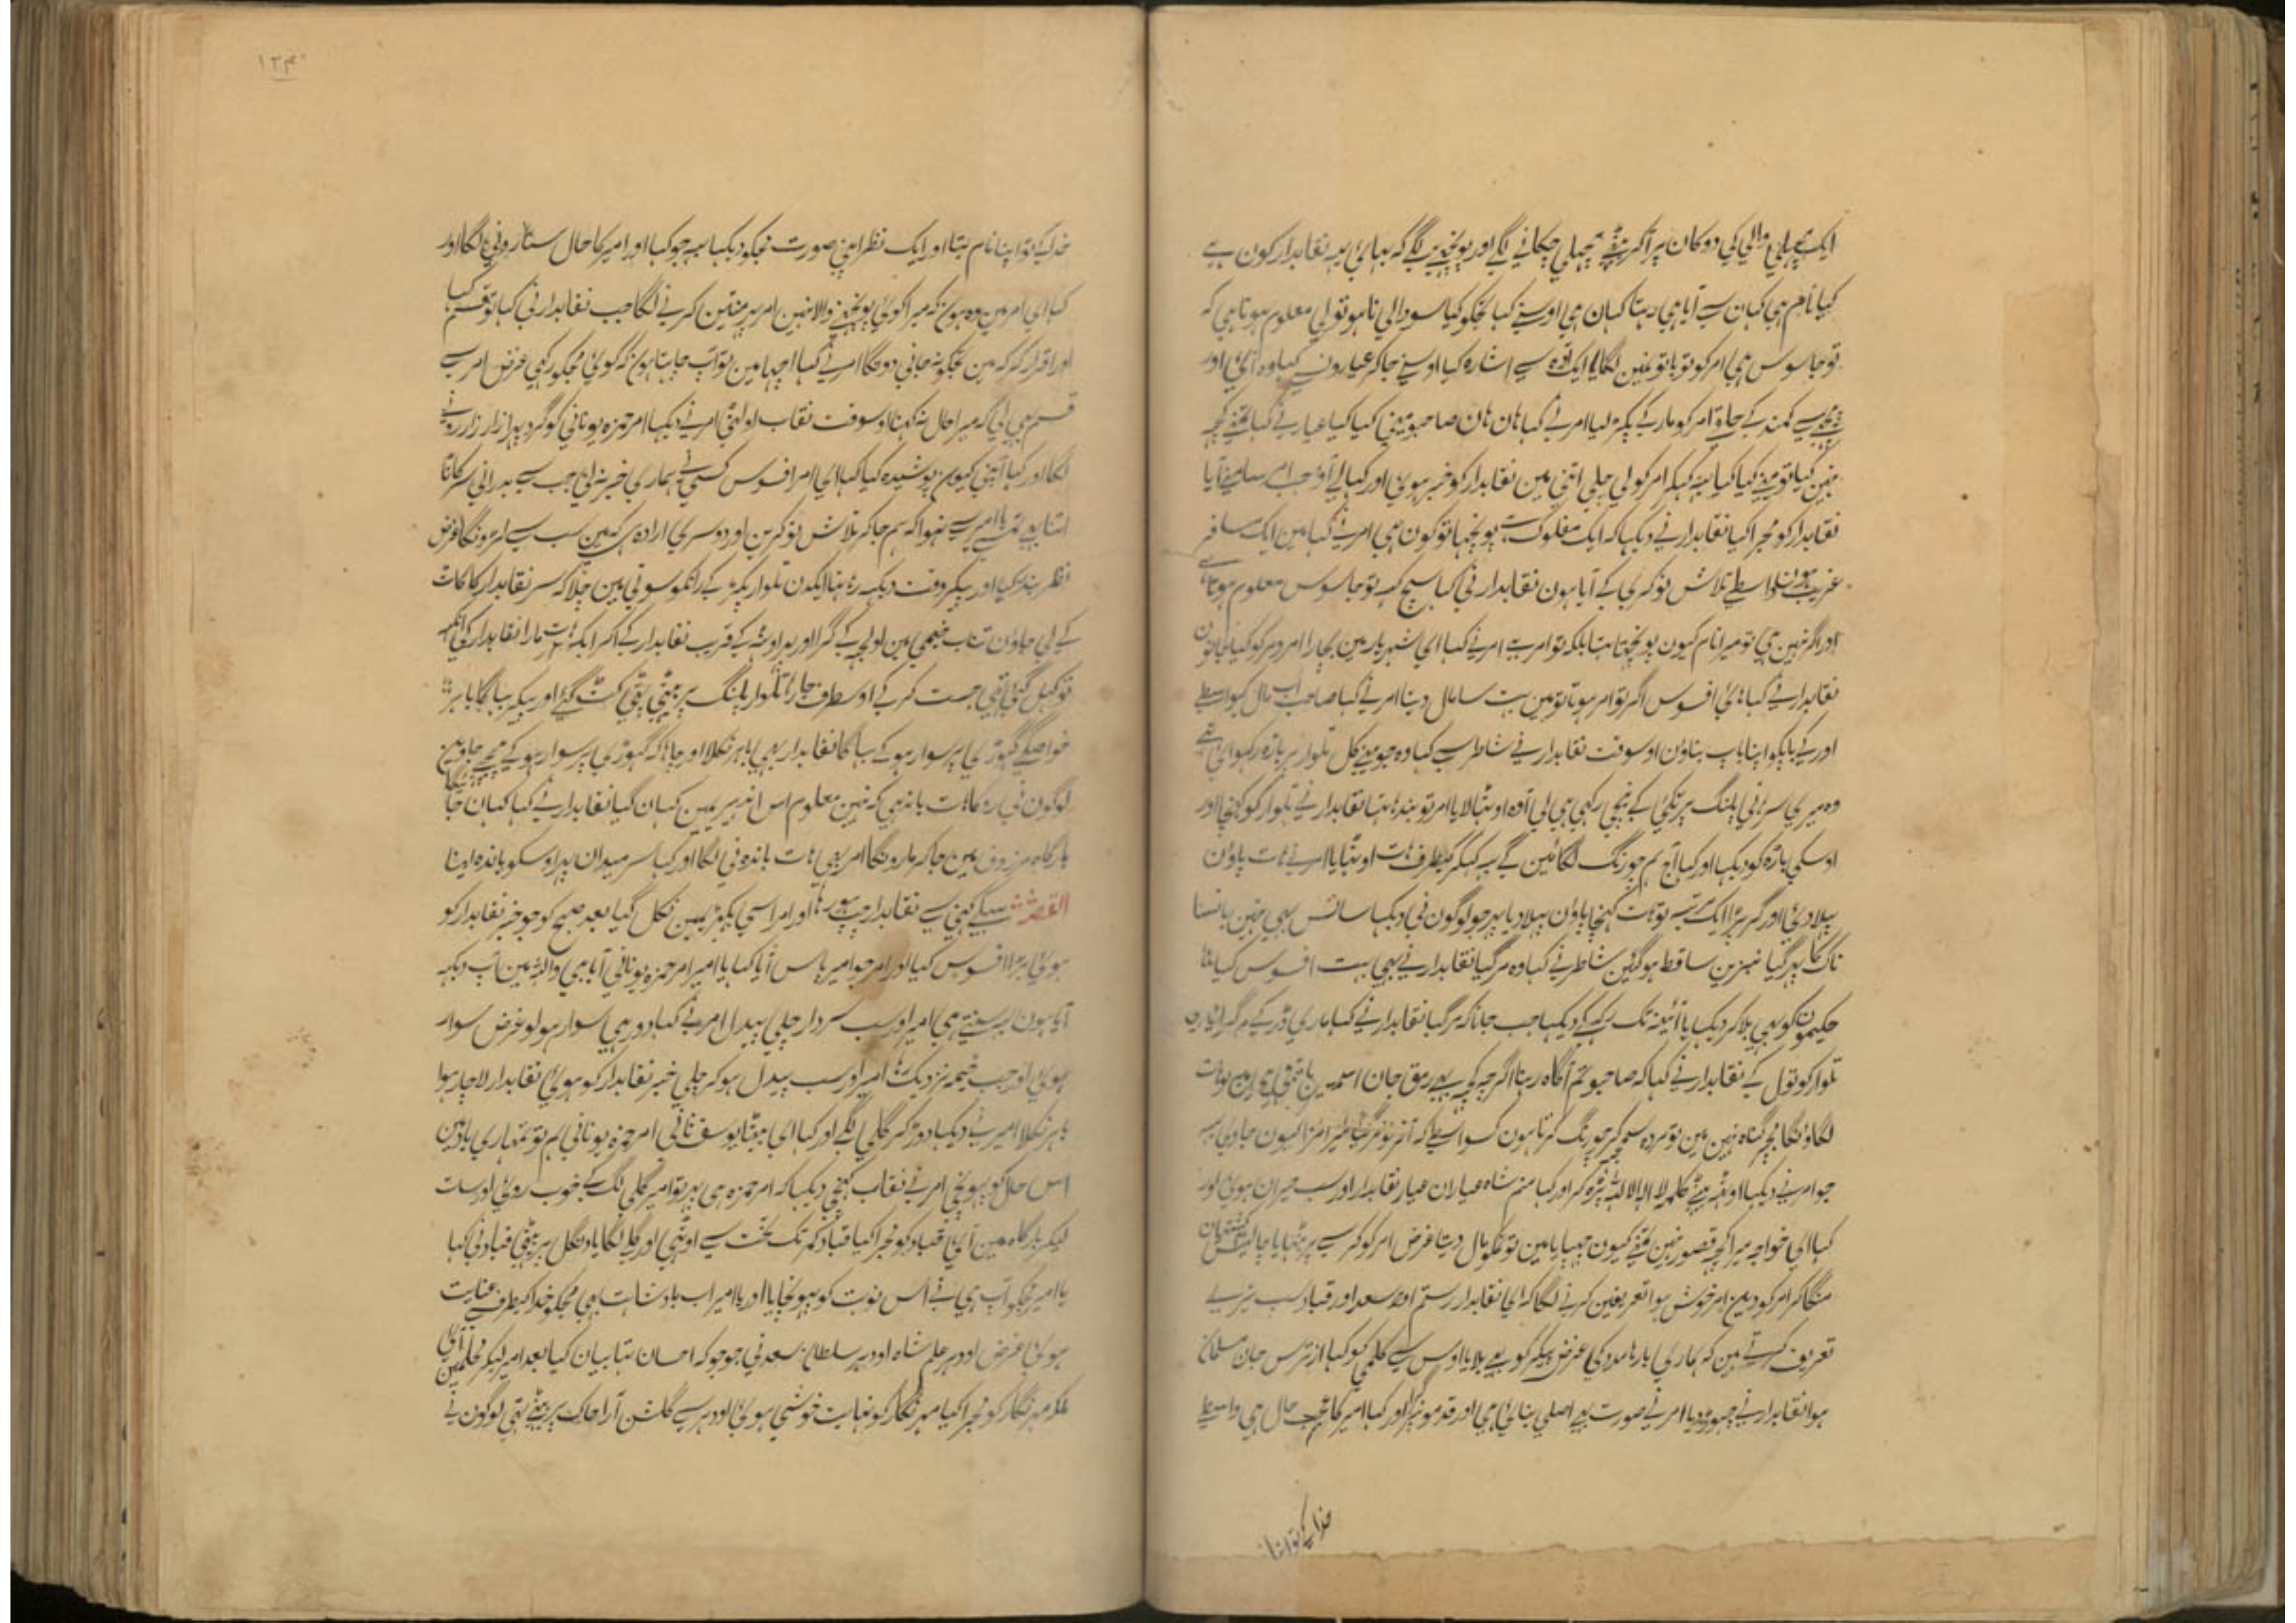 ایک مچھلی والی کی دوکان پر آکر بیٹھے مچھلی چکانے لگے اور پوچھنے لگے کہ بھائی یہ نقابدار کون ہے
کیا نام ہی کہان سے آیا ہی رہتا کہان ہی اوسنے کہا تجکو کیا سودا لی نا ہو تو لی معلوم ہوتا ہی کہ
تو جاسوس ہی امر کو تو باتونمین لگایا ایک سے اشارہ کیا اوسنے جاکر عیارون سے کہا وہ آئی اور
پیچھے سے کمند کے حلقے امر کو مار کے پکڑ لیا امر نے کہا ہان ہان صاحبو مینی کیا کیا عیار نے کہا تمنے کچھ
نہین کیا تو مینے کیا کیا یہ کہکر امر کو لی چلے اتنی مین نقابدار کو خبر ہوئی اور کہا لے آؤ جب امر سامنے آیا
نقابدار کو مجرا کیا نقابدار نے دیکھا کہ ایک مفلوک ہے پوچھا تو کون ہی امر نے کہا مین ایک مسافر
غریب واسطے تلاش نوکری کے آیا ہون نقابدار نی کہا سچ کہہ تو جاسوس معلوم ہوتا ہے
اور اگر نہین ہی تو میرا نام کیون پوچھتا تھا بلکہ تو امر ہے امر نے کہا ای شہریار مین بچارا امر دمر کو کیا جانون
نقابدار نے کہا ہای افسوس اگر تو امر ہوتا تو مین بہت سا مال دیتا امر نے کہا صاحب اب مال کیواسطے
اور کے باپکو اپنا باپ بناؤن اوسوقت نقابدار نے شاطر سے کہا وہ جو مینے کل تلوار پر باڑہ رکھوائی ہے
وہ میری سرہانی پلنگ پر تکیئی کے نیچی رکھی ہی لی آ وہ اوٹھا لایا امر تو بندھا تھا نقابدار نے تلوار کو کھینچا اور
اوسکی باڑہ کو دیکھا اور کہا آج ہم چورنگ لگائین گے یہ کہکر کیطرف ہات اوٹھایا امر نے ہات پاؤن
پھیلا دئی اور گر پڑا ایک مرتبہ تو ہات کھینچا پاؤن پھیلا دیا پھر جو لوگون نی دیکھا سانس بھی نہین
ناک کا پھر گیا نبزین ساقط ہوگئین شاطر نے کہا وہ مر گیا نقابدار نے بھی بہت افسوس کیا
حکیمون کو بھی بلا کر دیکھا یا آئینہ تک رکھ کے دیکھا جب جانا کہ مر گیا نقابدار نے کہا ماری ڈر کے مر گیا
تلوار کو تول کے نقابدار نے کہا کہ صاحبو تم آگاہ رہنا اگرچہ کچھ بھی رمق جان اسمین باقی ہی مین تو ہات
لگاؤنگا مجھے گناہ نہین مین تو مردہ سمجھ کر چورنگ کرتا ہون کسواسطے کہ آخر تو مر گیا میرا مزا کیون جاوی یہ
جو امر نے دیکھا اوٹھ بیٹھے کلمہ لا الہ الا اللہ پڑہ کر اور کہا منم شاہ عیاران عیار نقابدار اور سب حیران ہوئی اور
کہا ای خواجہ میرا کچھ قصور نہین تمنے کیون چھپایا مین تو تمکو مال دیتا غرض امر کو کرسے پر بٹھایا چالیس کشتیان
منگا کر امر کو دین امر خوش ہوا تعریفین کرنے لگا کہ ای نقابدار رستم اور سعد اور قباد سب تیری
تعریف کرتے ہین کہ ہماری بارہا مدد کی غرض پیکر کو بھے بلایا اوس سے کلمی کو کہا از ترس جان مسلمان
ہوا نقابدار نے چھوڑ دیا امر نے صورت بھے اصلی بنائی ہی اور قدمونپر گرا اور کہا امیر کا عجب حال ہی واسطے
خدا کے تو اپنا
۱۲۴۰
خدا کے تو اپنا نام بتا اور ایک نظر اپنی صورت مجکو دیکھا یہ جو کہا اور امیر کا حال سنا رونی لگا اور
کہا ای امر مین وہ ہون کہ میرا کوئی پوچھنے والا نہین امر پھر منتین کرنے لگا جب نقابدار نی کہا تو قسم کہا
اور اقرار کر کہ مین تجکو نہ جانی دونگا امر نے کہا اچھا مین تو آپ چاہتا ہون کہ کوئی مجکو رکھی غرض امر سے
قسم بھی لی کہ میرا حال نہ کہنا اوسوقت نقاب اولٹی امر نے دیکھا امر حمزہ یونانی کو گرد پھرا زار زار رونے
لگا اور کہا آپنی کیون پوشیدہ کیا کہا ای امر افسوس کسی نے ہماری خبر نہ لی جب سے پدرانی سر کاٹا
اتنا بھے تمسے یا امیر سے نہوا کہ ہم جاکر تلاش تو کرین اور دوسری ارادہ کہین سب سے امرونگا غرض
نظر بند کیا اور پیکر وقت دیکھ رہا تھا ایکدن تلوار پکڑ کے راتکو سوتی مین چلا کہ سر نقابدار کا کاٹ
کے لی جاؤن تاب خیمی مین اولجھ کے گرا اور پھر اوٹھ کے قریب نقابدار کے آکر ایک ہات مارا نقابدار کی آنکھ
تو کھل گئی تھی جست کر کے اوسطرف جا رہا تلوار پلنگ پر بیٹھی پٹی کٹ گئے اور پیکر بھاگا باہر
خواصکے گھوڑی پر سوار ہو کے بھاگا نقابدار بھی باہر نکلا اور چاہا کہ گھوڑی پر سوار ہو کے پیچھے جاوین
لوگون نی روکا ہات باندھی کہ نہین معلوم اس اندھیریمین کہان گیا نقابدار نے کہا کہان جائیگا
بارگاہ مرزوق مین جاکر مارونگا امر بھی ہات باندہ نی لگا اور کہا سر میدان پھر اوسکو باندہ لینا
القصہ سبکے کہنی سے نقابدار چپ ہو رہا اور امر اسی پکڑ مین نکل گیا بعد صبح کو جو خبر نقابدار کو
ہوئی بڑا افسوس کیا اور امر جو امیر پاس آیا کہا یا امیر امر حمزہ یونانی آیا ہی واللہ مین آپ دیکھ
آیا ہون یہ سنتے ہی امیر اور سب سردار چلی پیدل امر نے کہا دور ہی سوار ہولو غرض سوار
ہوئی اور جب خیمہ نزدیک رہا امیر اور سب پیدل ہو کر چلی خبر نقابدار کو ہوئی نقابدار لاچار ہوا
باہر نکلا امیر نے دیکھا دوڑ کر گلی لگے اور کہا ای بیٹا یوسف ثانی امر حمزہ یونانی ہم تو تمہاری یادمین
اس حال کو پہونچی امر نے نقاب کھینچی دیکھا کہ امر حمزہ ہی پھر تو امیر گلی لگ کے خوب روئی اور سات
لیکر بارگاہ مین آئی قباد کو مجرا کیا قباد کمر تک تخت سے اوٹھی اور گلے لگایا دنگل پر بیٹھی قباد نی کہا
یا امیر مجکو آپ ہی نے اس نوبت کو پہونچایا اور یا امیر اب بادشاہت بھی مجکو خدا کیطرف سے عنایت
ہوئی غرض اودہر علم شاہ اودہر سلطان سعد نی جو جو کہ احسان تھا بیان کیا بعد امیر لیکر محلمین آئی
ملکہ مہرنگار کو مجرا کیا مہرنگار کو نہایت خوشی ہوئی اودہر سے گلشن آرا خاک پر بیٹھے تھی لوگون نے